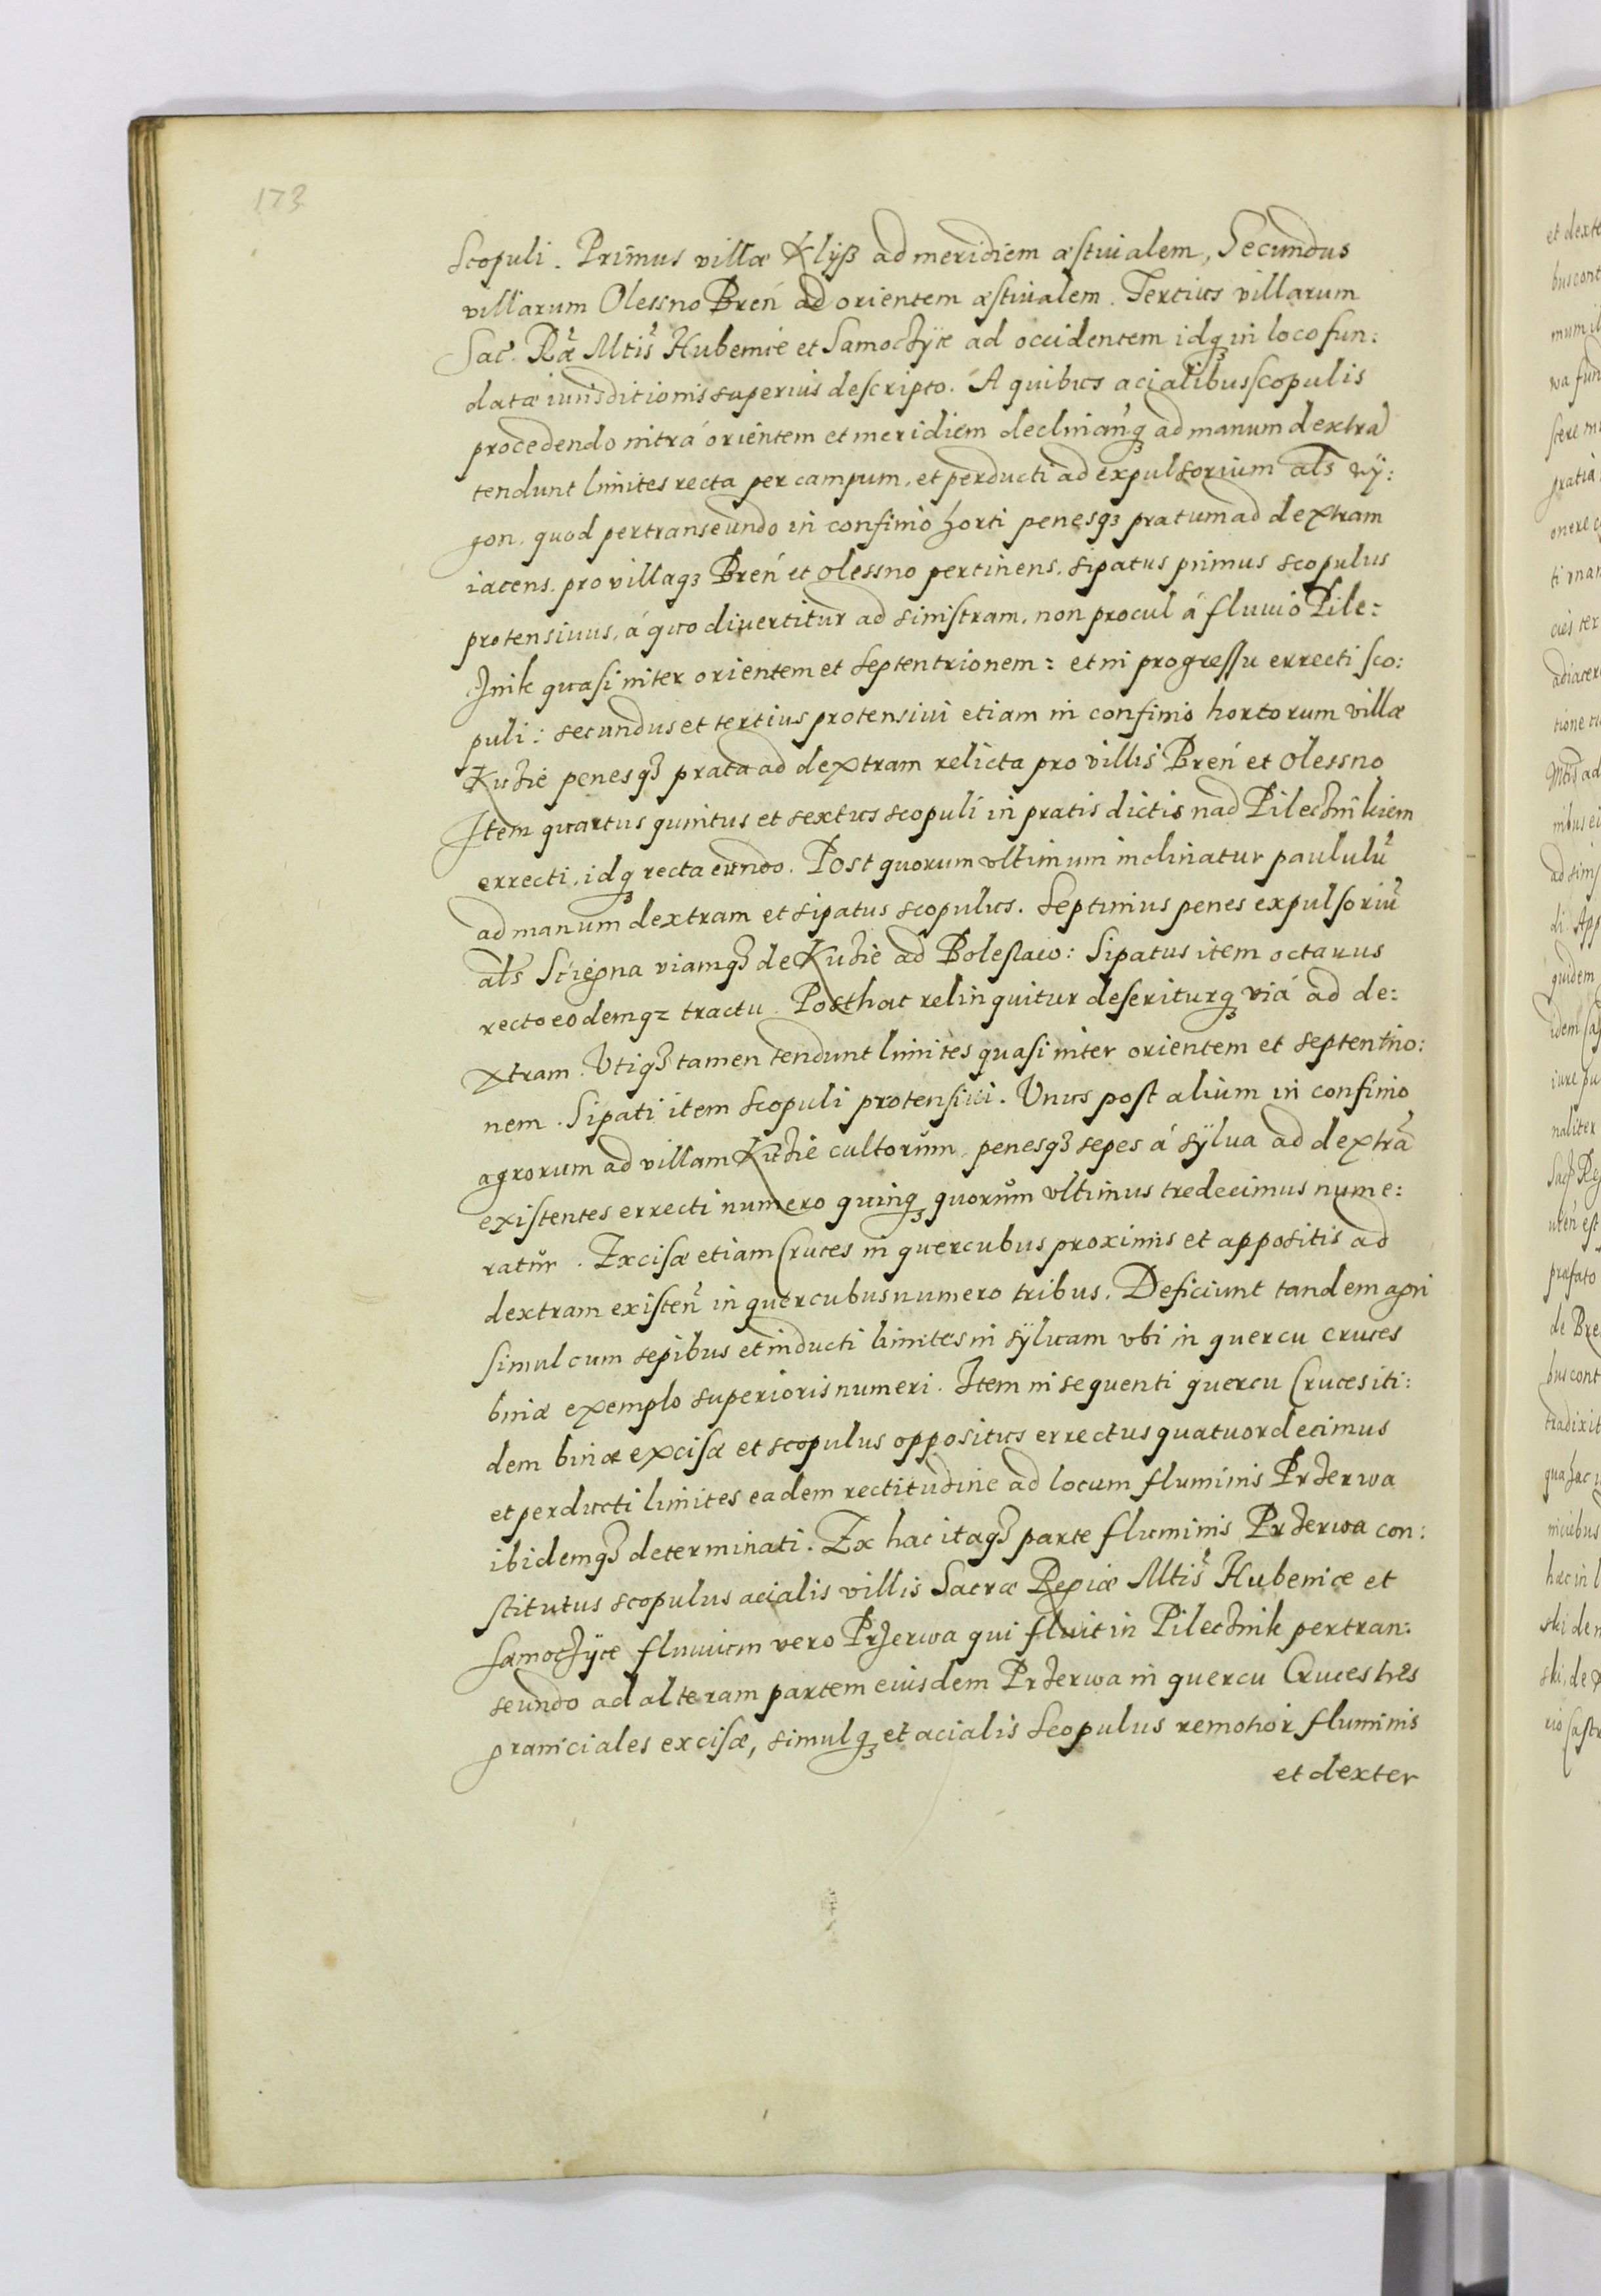 173
Scopuli. Primus villæ Klÿß ad meridiem æstiualem, Secundus
villarum Olessno Breń ad orientem æstiualem. Tertius villarum
Sac. Ræ Mtis Hubenice et Samoczÿce ad occidentem idqꝫ in loco fun:
datæ iurisditionis superius descripto. A quibus acialibus scopulis
procedendo intrá orientem et meridiem declinanqꝫ ad manum dextrā
tendunt limites recta per campum, et perducti ad expulsorium als wÿ:
gon, quod pertranseundo in confinio horti penesqꝫ pratum ad dextram
iacens. pro villaqꝫ Breń et Olessno pertinens. sipatus primus scopulus
protensiuus, á quo divertitur ad sinistram, non procul á fluuio Pile=
znik quasi inter orientem et septentrionem: et in progressu errecti sco:
puli: secundus et tertius protensiui etiam in confinio hortorum villæ
Kuzie penesqꝫ prata ad dextram relicta pro villis Breń et Olessno
Item quartus quintus et sextus scopuli in pratis dictis nad Pilecznikiem
errecti, idqꝫ recta eundo. Post quorum vltimum inclinatur paululū
ad manum dextram et sipatus scopulus. Septimus penes expulsoriū
als Sciegna viamqꝫ de Kuzie ad Bolesław: Sipatus item octauus
recto eodemqꝫ tractu. Posthac relinquitur deseriturqꝫ viá ad de:
xtram. Vtiqꝫ tamen tendunt limites quasi inter orientem et septentrio:
nem. Sipati item scopuli protensiui. Vnus post alium in confinio
agrorum ad villam Kuzie cultorum, penesqꝫ sepes á sÿlua ad dextrā
existentes errecti numero quinqꝫ quorum vltimus tredecimus nume:
ratur. Excisæ etiam Cruces in quercubus proximis et appositis ad
dextram existen̄ in quercubus numero tribus. Deficiunt tandem agri
simul cum sepibus et inducti limites in sÿluam vbi in quercu cruces
binæ exemplo superioris numeri. Item in sequenti quercu Cruces iti:
dem binæ excisæ et scopulus oppositus errectus quatuordecimus
et perducti limites eadem rectitudine ad locum fluminis Przerwa
ibidemqꝫ determinati. Ex hac itaqꝫ parte fluminis Przerwa con:
stitutus scopulus acialis villis Sacræ Regiæ Mtis Hubenice et
Samoczÿce fluuium vero Przerwa qui fluit in Pilecznik pertran:
seundo ad alteram partem eiusdem Przerwa in quercu Cruces tres
graniciales excisæ, simulqꝫ et acialis scopulus remotior fluminis
et dexter